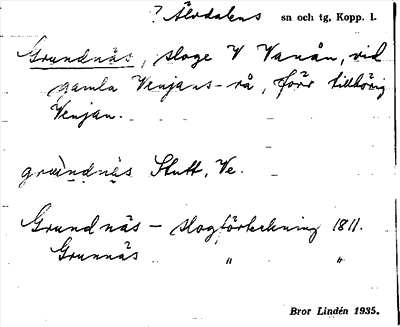 ? Älvdalens sn och tg, Kopp. l.
Grundnäs, sloge V Vanån, vid
gamla Venjans-rå, förr tillhörig
Venjan.
grùndnès Slutt, Ve.
Grundnäs - slogförteckning 1811.
Grunnäs " "
Bror Lindén 1935.